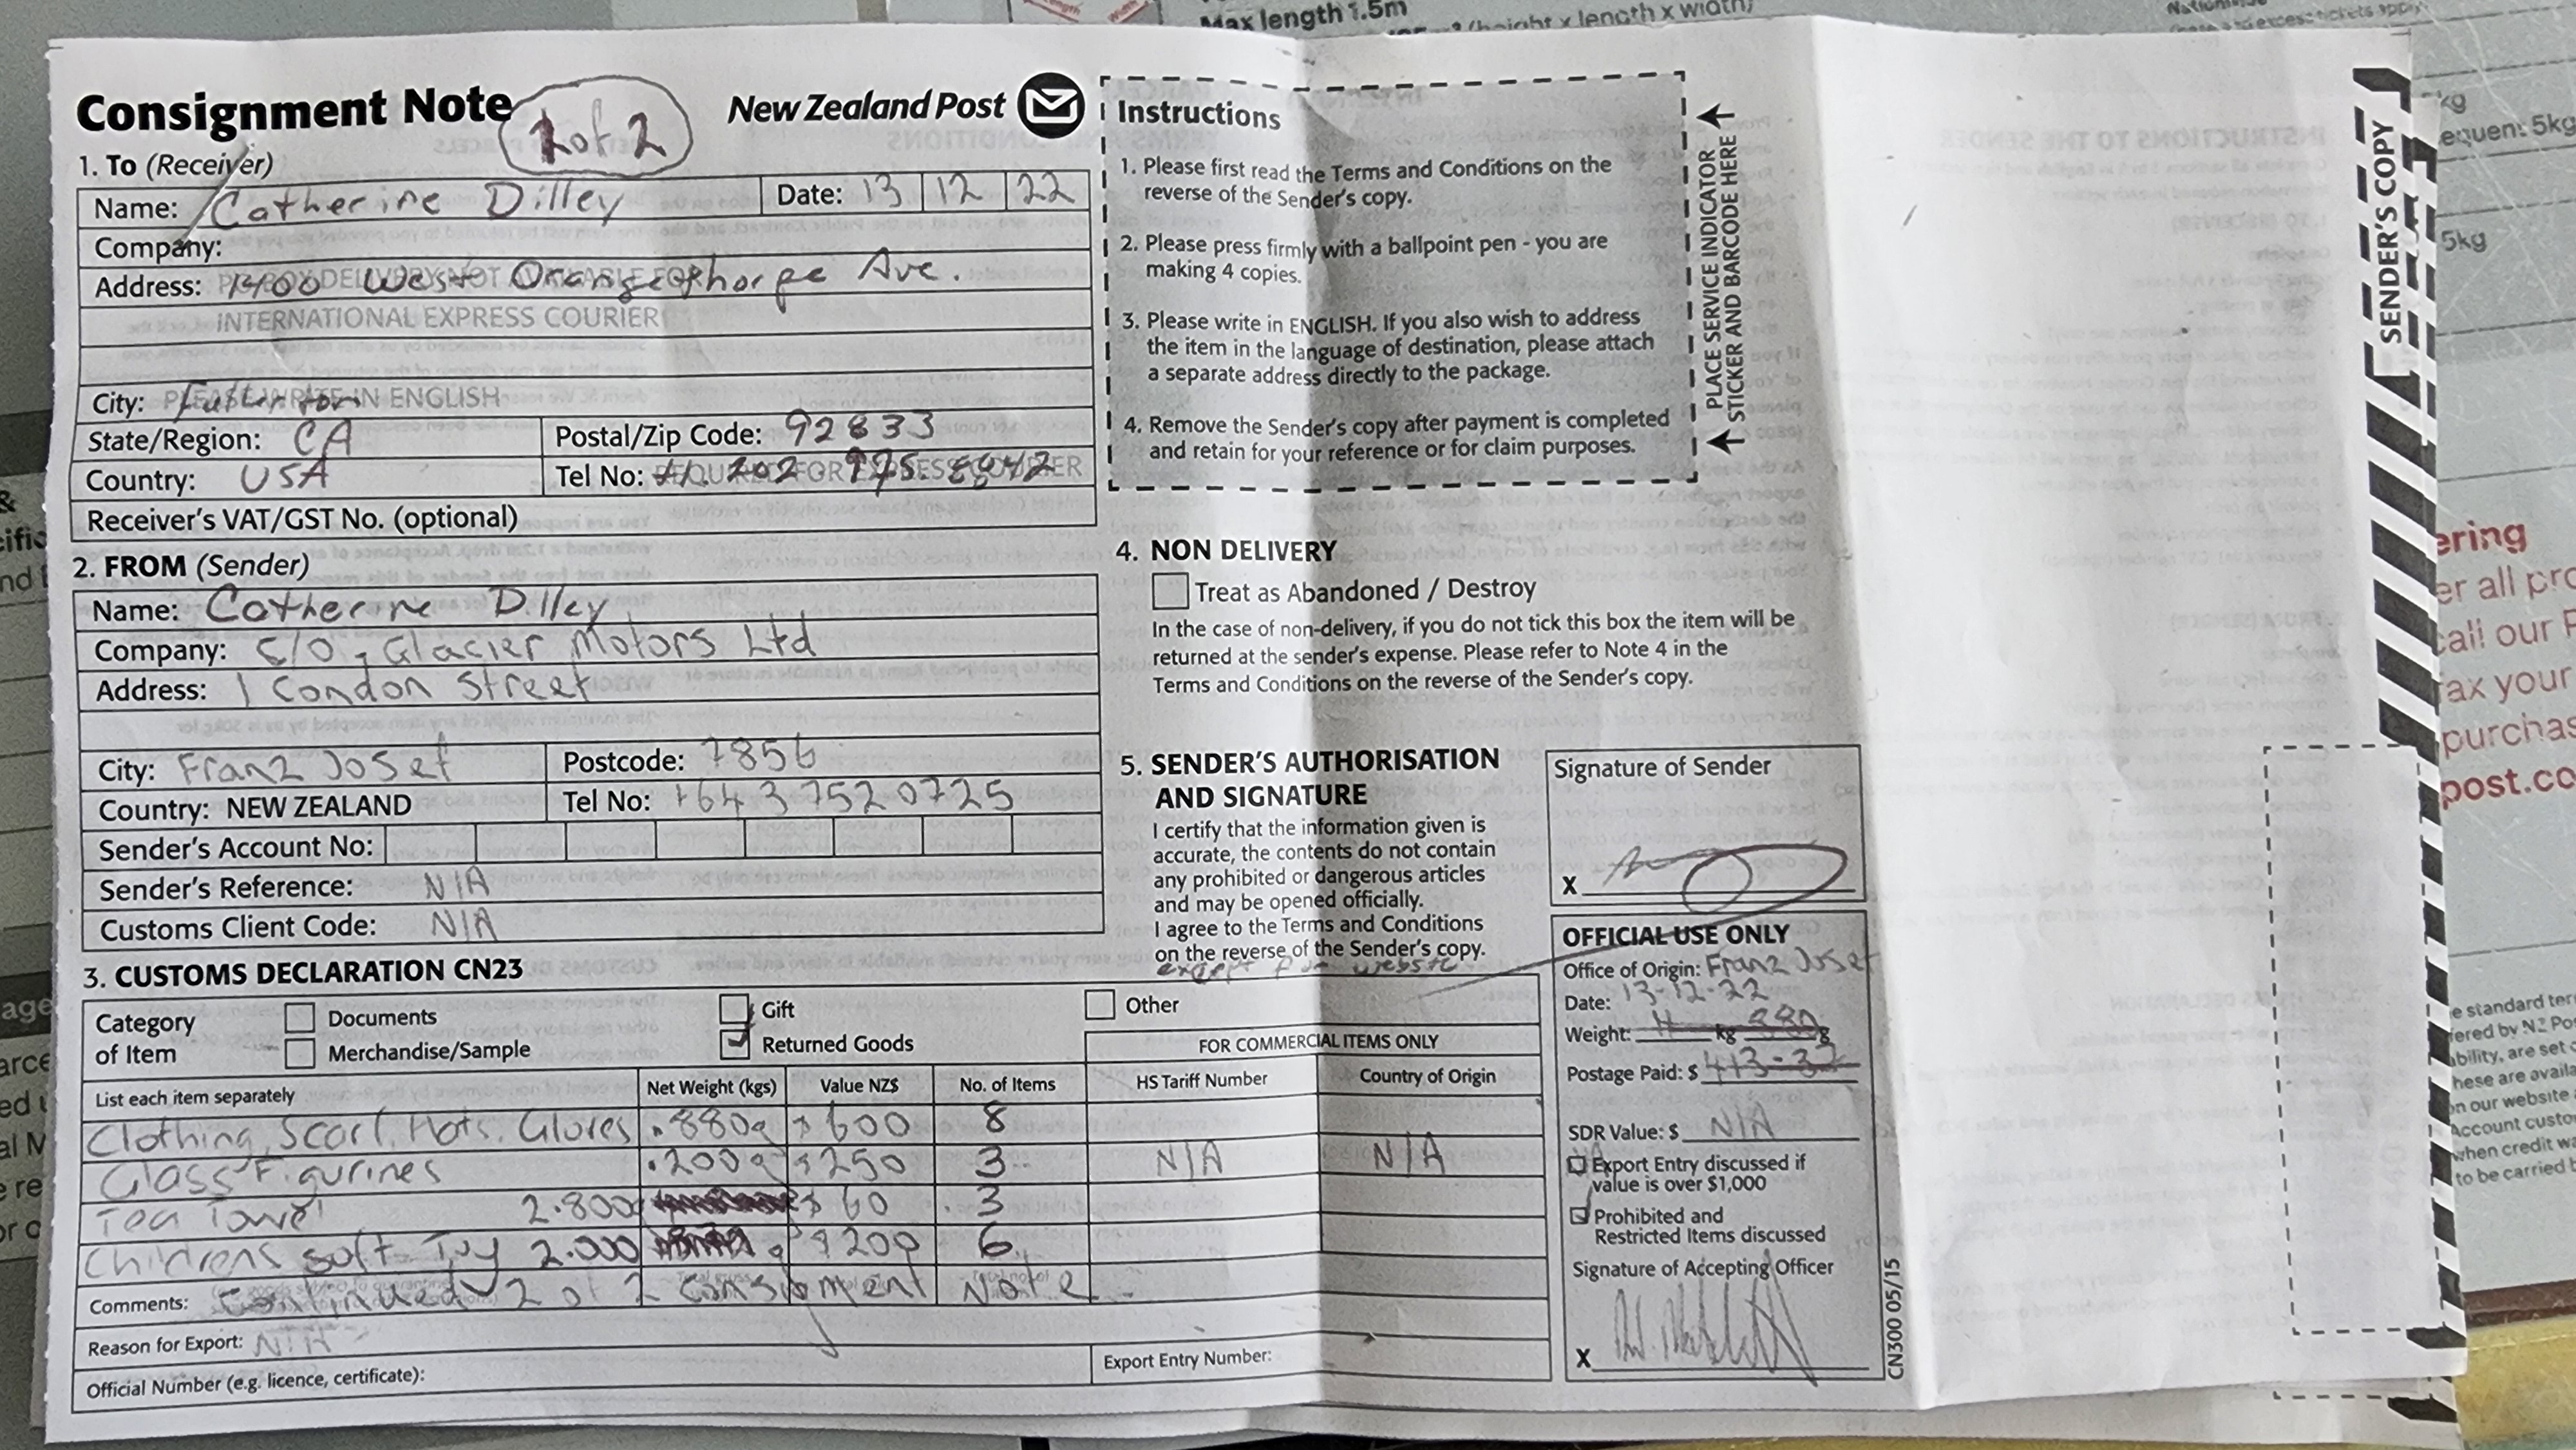 Max length 1.5m
(height x length x width)
Consignment Note
1 of 2
New Zealand Post
1. To (Receiver)
Name: Catherine Dilley
Date: 13 12 22
Company:
Address: 1400 West Orangethorpe Ave.
INTERNATIONAL EXPRESS COURIER
City: Fullerton
PLEASE WRITE IN ENGLISH
State/Region: CA
Postal/Zip Code: 92833
Country: USA
Tel No:
Receiver's VAT/GST No. (optional)
2. FROM (Sender)
Name: Catherine Dilley
Company: C/O - Glacier Motors Ltd
Address: 1 Condon Street
City: Franz Josef
Postcode: 7856
Country: NEW ZEALAND
Tel No: +64 3 7520725
Sender's Account No:
Sender's Reference: N/A
Customs Client Code: N/A
3. CUSTOMS DECLARATION CN23
Category of Item
Documents
Gift
Other
Merchandise/Sample
Returned Goods
FOR COMMERCIAL ITEMS ONLY
List each item separately
Net Weight (kgs)
Value NZ$
No. of Items
HS Tariff Number
Country of Origin
Clothing, Scarf, Hats, Gloves .880g $600 8
Glass Figurines .200g $250 3 N/A N/A
Tea Towel 2.800 $60 3
Childrens Soft Toy 2.000 g $200 6
Comments: Continued 2 of 2 Consignment Note
Reason for Export: N/A
Export Entry Number:
Official Number (e.g. licence, certificate):
Instructions
1. Please first read the Terms and Conditions on the
reverse of the Sender's copy.
2. Please press firmly with a ballpoint pen - you are
making 4 copies.
3. Please write in ENGLISH. If you also wish to address
the item in the language of destination, please attach
a separate address directly to the package.
4. Remove the Sender's copy after payment is completed
and retain for your reference or for claim purposes.
PLACE SERVICE INDICATOR
STICKER AND BARCODE HERE
4. NON DELIVERY
Treat as Abandoned / Destroy
In the case of non-delivery, if you do not tick this box the item will be
returned at the sender's expense. Please refer to Note 4 in the
Terms and Conditions on the reverse of the Sender's copy.
5. SENDER'S AUTHORISATION
AND SIGNATURE
I certify that the information given is
accurate, the contents do not contain
any prohibited or dangerous articles
and may be opened officially.
I agree to the Terms and Conditions
on the reverse of the Sender's copy.
except for website
Signature of Sender
X
OFFICIAL USE ONLY
Office of Origin: Franz Josef
Date: 13-12-22
Weight: 11 kg 880 g
Postage Paid: $ 413-32
SDR Value: $ N/A
Export Entry discussed if
value is over $1,000
Prohibited and
Restricted Items discussed
Signature of Accepting Officer
X
CN300 05/15
SENDER'S COPY
5kg
ering
er all pro
call our
ax your
purchas
post.co